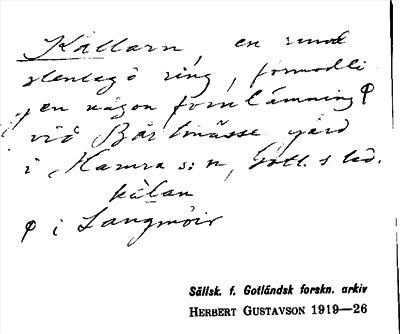 Källarn, en rund
stenlagd ring, förmodli
gen någon fornlämning φ
vid Bårlmässe gård
i Hamra s:n, Gotl. s. hd.
källan
φ i Langmöir
Sällsk. f. Gotländsk forskn. arkiv
HERBERT GUSTAVSON 1919—26